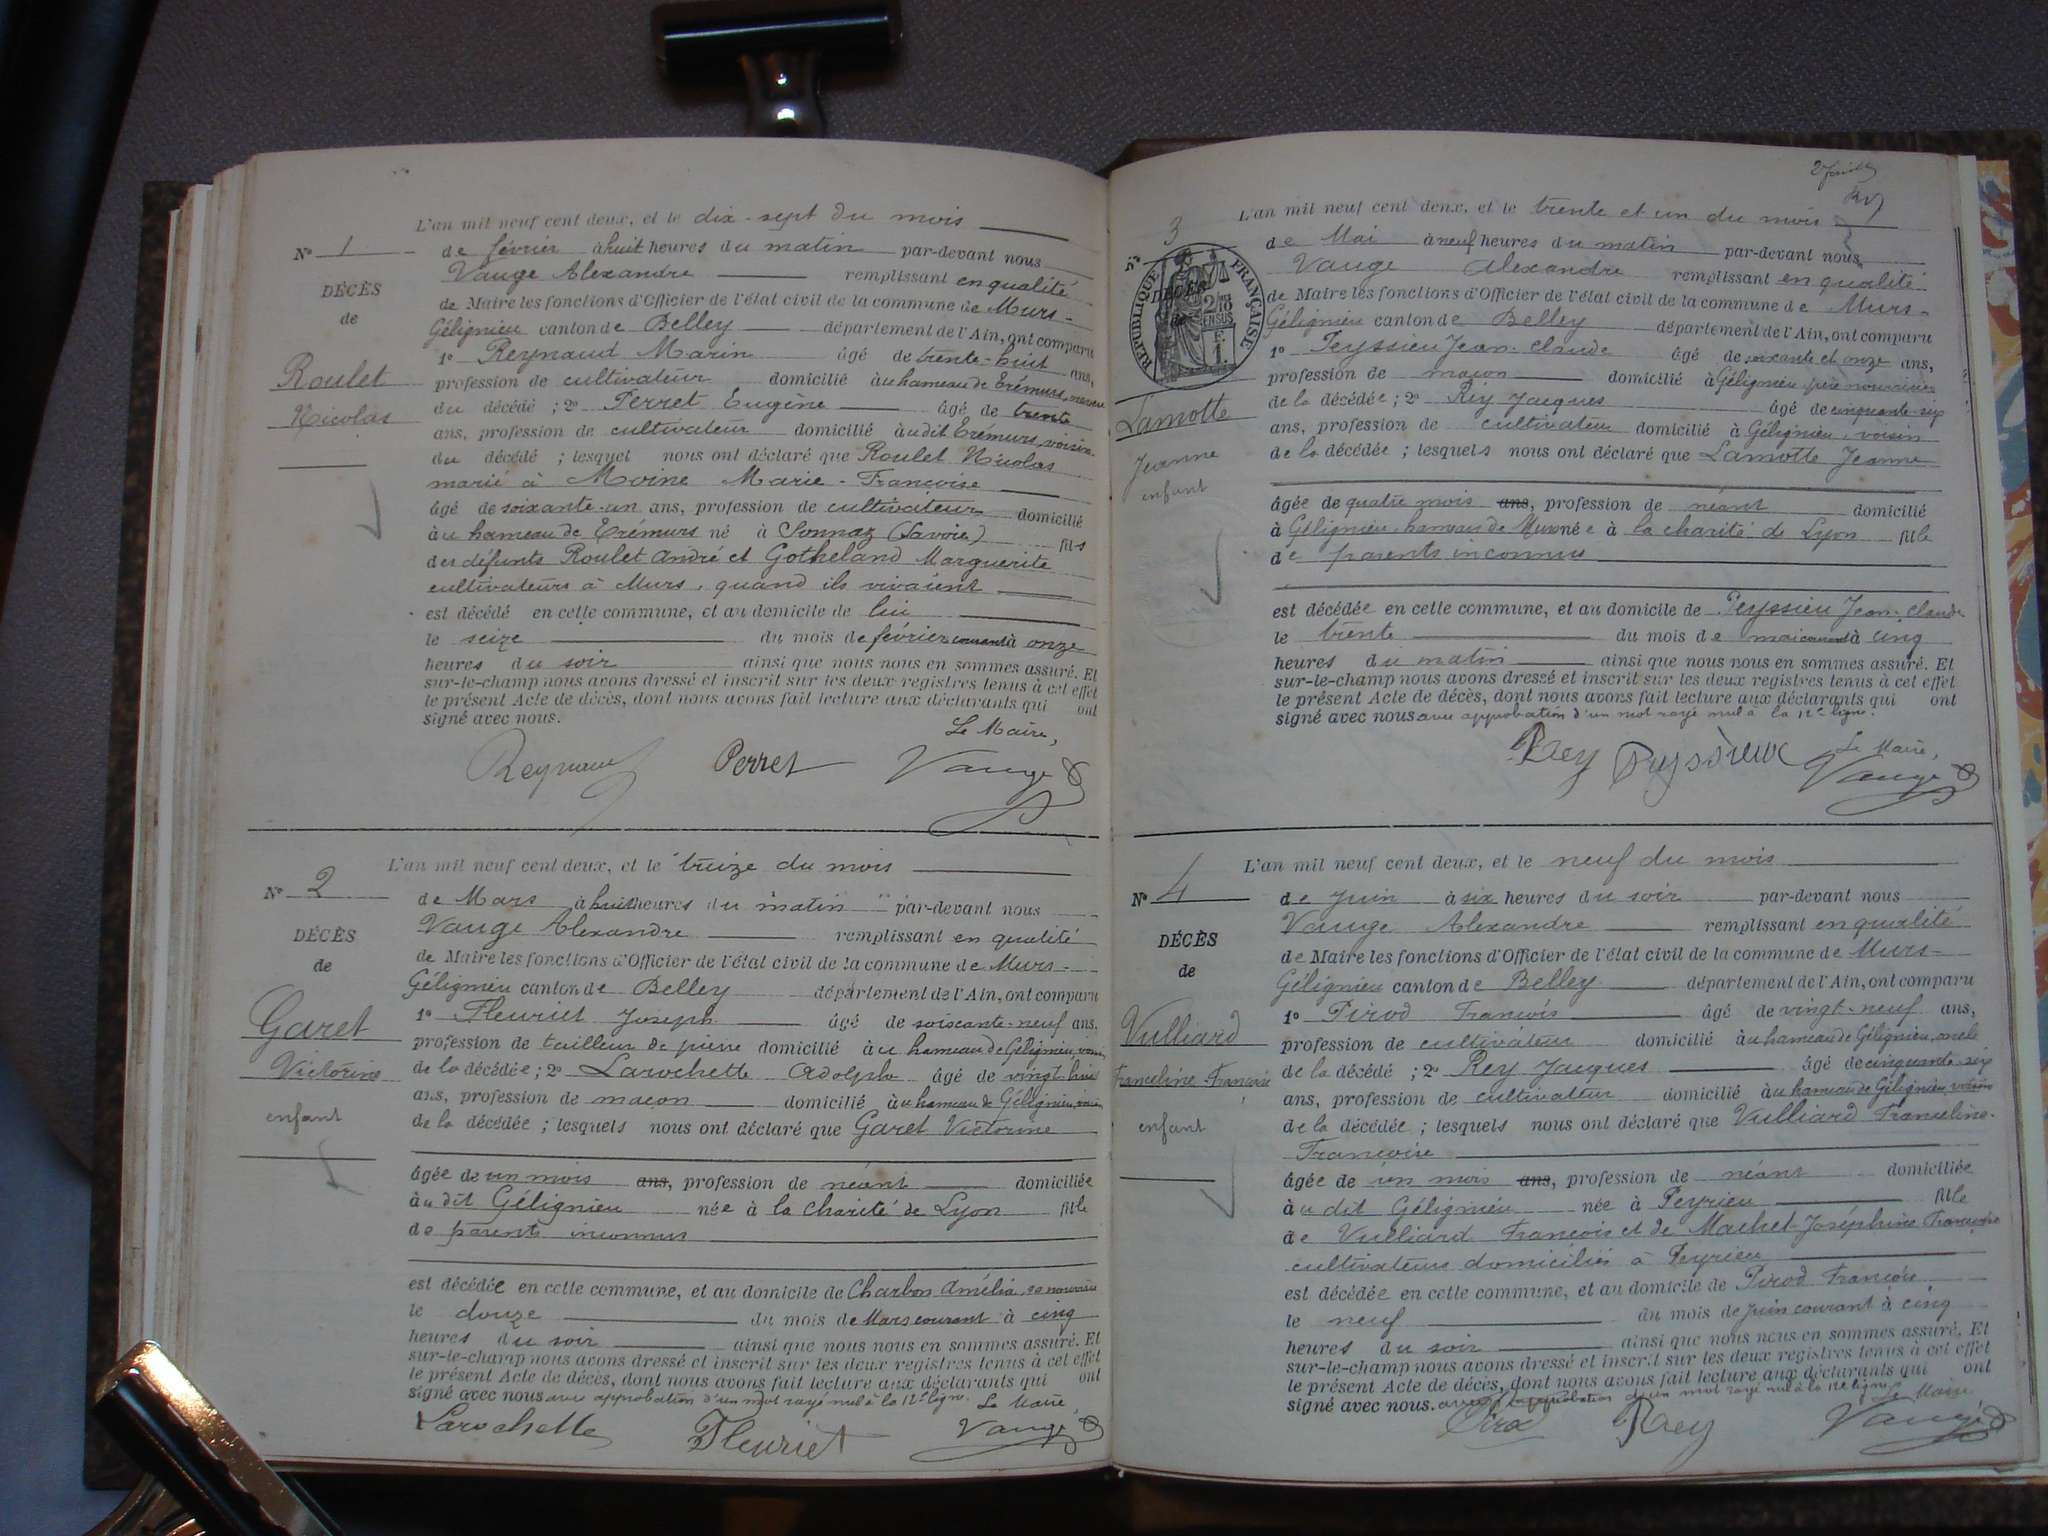 L'an mil neuf cent deux, et le dix-sept du mois
N° 1 de février à huit heures du matin par-devant nous
Vauge Alexandre remplissant en qualité
DÉCÈS
de Maire les fonctions d'Officier de l'état civil de la commune de Murs-
de
Gélignieu canton de Belley département de l'Ain, ont comparu
1° Reynaud Marin âgé de trente-huit ans,
Roulet
profession de cultivateur domicilié au hameau de Crémurs, neveu
Nicolas
du décédé ; 2° Perret Eugène âgé de trente
ans, profession de cultivateur domicilié au dit Crémurs, voisin
du décédé ; lesquels nous ont déclaré que Roulet Nicolas
marié à Moine Marie-Françoise
âgé de soixante-un ans, profession de cultivateur domicilié
au hameau de Crémurs né à Sonnaz (Savoie) fils
des défunts Roulet André et Gotheland Marguerite
cultivateurs à Murs, quand ils vivaient
est décédé en cette commune, et au domicile de lui
le seize du mois de février courant à onze
heures du soir ainsi que nous nous en sommes assuré. Et
sur-le-champ nous avons dressé et inscrit sur les deux registres tenus à cet effet
le présent Acte de décès, dont nous avons fait lecture aux déclarants qui ont
signé avec nous.
Le Maire,
Reynaud Perret Vauge
L'an mil neuf cent deux, et le treize du mois
N° 2 de Mars à huit heures du matin par-devant nous
Vauge Alexandre remplissant en qualité
DÉCÈS
de Maire les fonctions d'Officier de l'état civil de la commune de Murs-
de
Gélignieu canton de Belley département de l'Ain, ont comparu
1° Fleuriet Joseph âgé de soixante-neuf ans,
Garet
profession de tailleur de pierre domicilié au hameau de Gélignieu, voisin
Victorine
de la décédée ; 2° Larochette Adolphe âgé de vingt-huit
ans, profession de maçon domicilié au hameau de Gélignieu, voisin
enfant
de la décédée ; lesquels nous ont déclaré que Garet Victorine
âgée de un mois ans, profession de néant domiciliée
au dit Gélignieu née à la charité de Lyon fille
de parents inconnus
est décédée en cette commune, et au domicile de Charbon Amélie, sa nourrice
le douze du mois de Mars courant à cinq
heures du soir ainsi que nous nous en sommes assuré. Et
sur-le-champ nous avons dressé et inscrit sur les deux registres tenus à cet effet
le présent Acte de décès, dont nous avons fait lecture aux déclarants qui ont
signé avec nous avec approbation d'un mot rayé nul à la 12e ligne. Le Maire,
Larochette Fleuriet Vauge
L'an mil neuf cent deux, et le trente et un du mois
N° 3 de Mai à neuf heures du matin par-devant nous
Vauge Alexandre remplissant en qualité
RÉPUBLIQUE FRANÇAISE
DÉCÈS
de Maire les fonctions d'Officier de l'état civil de la commune de Murs-
de
Gélignieu canton de Belley département de l'Ain, ont comparu
1° Peyssieu Jean-Claude âgé de soixante et onze ans,
profession de maçon domicilié à Gélignieu père nourricier
Lamotte
de la décédée ; 2° Rey Jacques âgé de cinquante-six
ans, profession de cultivateur domicilié à Gélignieu, voisin
Jeanne
de la décédée ; lesquels nous ont déclaré que Lamotte Jeanne
enfant
âgée de quatre mois ans, profession de néant domicilié
à Gélignieu, hameau de Murs née à la charité de Lyon fille
de parents inconnus
est décédée en cette commune, et au domicile de Peyssieu Jean-Claude
le trente du mois de mai courant à cinq
heures du matin ainsi que nous nous en sommes assuré. Et
sur-le-champ nous avons dressé et inscrit sur les deux registres tenus à cet effet
le présent Acte de décès, dont nous avons fait lecture aux déclarants qui ont
signé avec nous avec approbation d'un mot rayé nul à la 12e ligne.
Le Maire,
Rey Peyssieux Vauge
L'an mil neuf cent deux, et le neuf du mois
N° 4 de Juin à six heures du soir par-devant nous
Vauge Alexandre remplissant en qualité
DÉCÈS
de Maire les fonctions d'Officier de l'état civil de la commune de Murs-
de
Gélignieu canton de Belley département de l'Ain, ont comparu
1° Pirod François âgé de vingt-neuf ans,
Vulliard
profession de cultivateur domicilié au hameau de Gélignieu, oncle
Franceline Françoise
de la décédé ; 2° Rey Jacques âgé de cinquante-six
ans, profession de cultivateur domicilié au hameau de Gélignieu, voisin
enfant
de la décédée ; lesquels nous ont déclaré que Vulliard Franceline-
Françoise
âgée de un mois ans, profession de néant domiciliée
au dit Gélignieu née à Peyrieu fille
de Vulliard François et de Machet Joséphine Françoise
cultivateurs domiciliés à Peyrieu
est décédée en cette commune, et au domicile de Pirod François
le neuf du mois de juin courant à cinq
heures du soir ainsi que nous nous en sommes assuré. Et
sur-le-champ nous avons dressé et inscrit sur les deux registres tenus à cet effet
le présent Acte de décès, dont nous avons fait lecture aux déclarants qui ont
signé avec nous. avec approbation d'un mot rayé nul à la 12e ligne. Le Maire
Pirod Rey Vauge